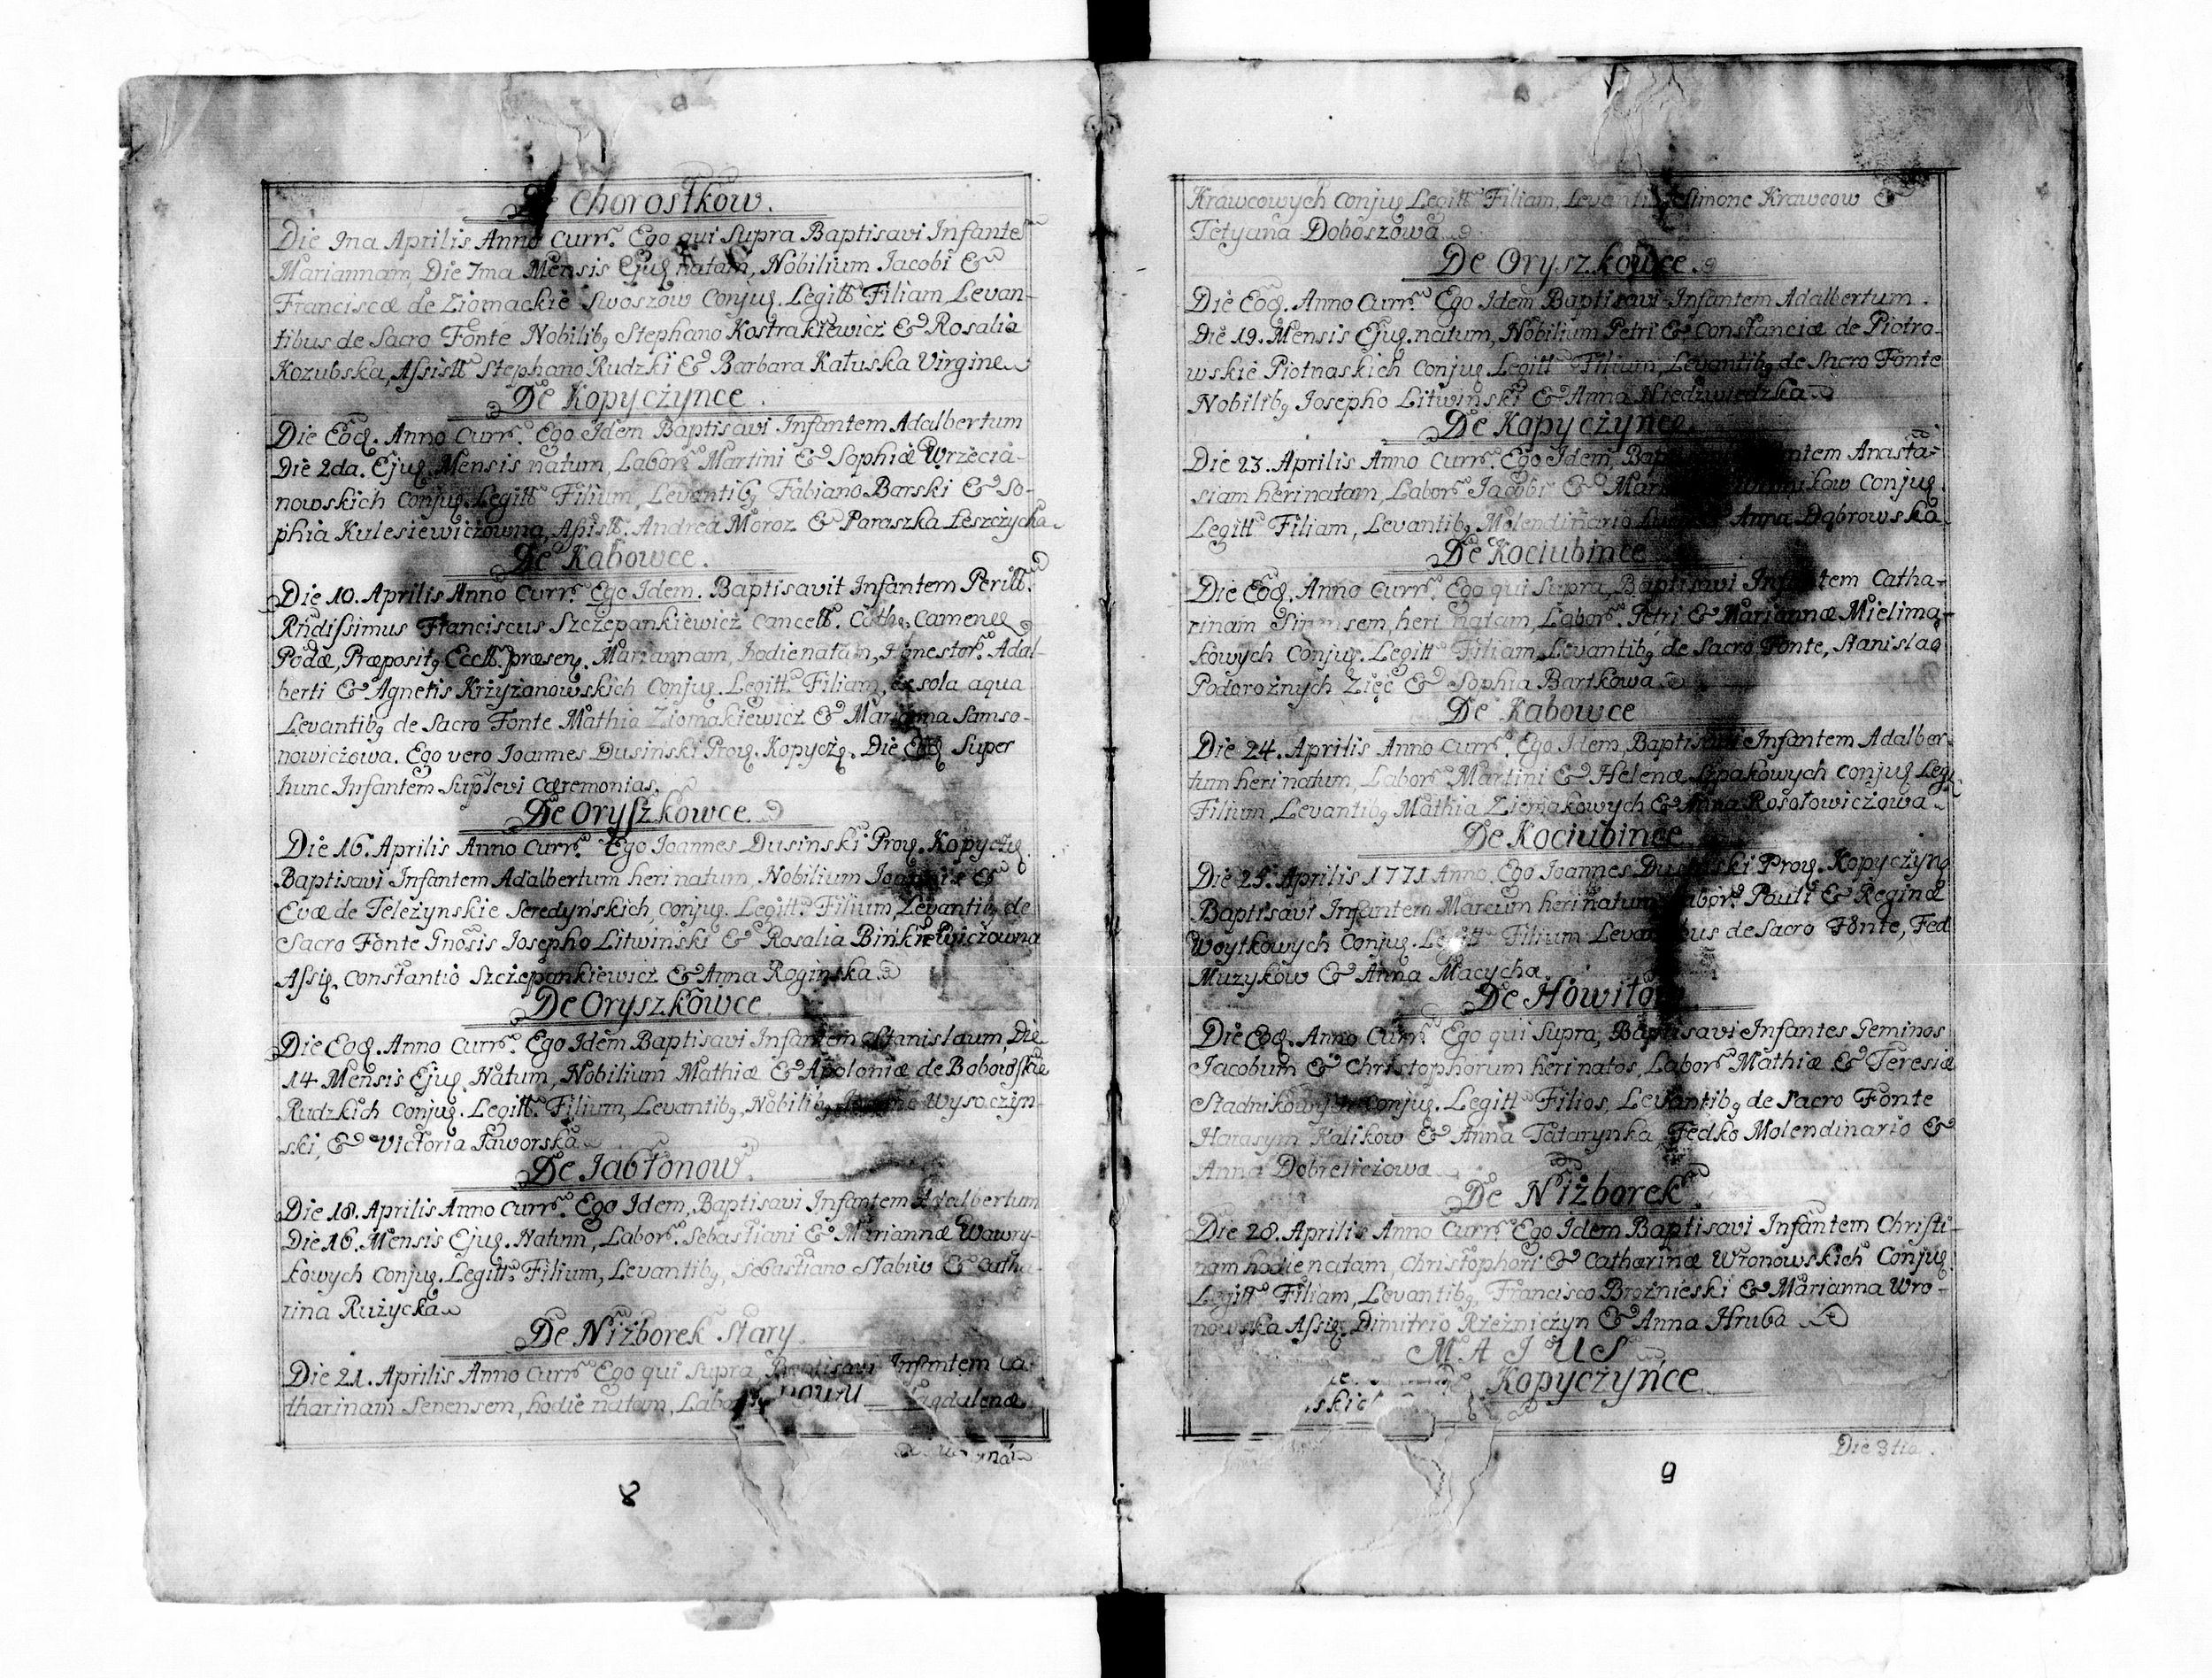 De Chorostkow.
Die Ima Aprilis Anno Curr. Ego qui Supra Baptisavi Infante
Mariannam, Die Ima Mensis Ejuq natam, Nobilium Jacobi &
Franciscæ de Ziomackie Swoszow Conjuq. Legitt. Filiam, Levan-
tibus de Sacro Fonte Nobilibq Stephano Kostrakiewicz & Rosalia
Kozubska, Assistt. Stephano Rudzki & Barbara Katuska Virgine
De Kopyczynce.
Die Eodq. Anno Curr. Ego Idem Baptisavi Infantem Adalbertum
Die 2da. Ejuq. Mensis natum, Labor. Martini & Sophiæ Wrzecia-
nowskich Conjuq. Legitt. Filium, Levantibq Fabiano Barski & So-
phia Kulesiewiczowna, Assistt. Andrea Moroz & Paraszka Leszczycha
De Kabowce.
Die 10. Aprilis Anno Curr. Ego Idem. Baptisavit Infantem Perill.
Rndissimus Franciscus Szczepankiewicz Cancell. Cathq. Camenq
Podæ, Præpositq Eccll. præsenq. Mariannam, hodie natam, Honestor. Adal-
berti & Agnetis Krzyzanowskich Conjuq. Legitt. Filiam, ex sola aqua
Levantibq de Sacro Fonte Mathia Ziomakiewicz & Marianna Samso-
nowiczowa. Ego vero Joannes Dusinski Proq. Kopyczq. Die Eodq Super
hunc Infantem Suplevi Cæremonias.
De Oryszkowce.
Die 16. Aprilis Anno Curr. Ego Joannes Dusinski Proq. Kopyczq
Baptisavi Infantem Adalbertum heri natum, Nobilium Joannis &
Evæ de Teleżynskie Seredyńskich, Conjuq. Legitt. Filium, Levantibq de
Sacro Fonte Gnosis Josepho Litwinski & Rosalia Binkiewiczowna
Assiq. Constantio Szczepankiewicz & Anna Roginska
De Oryszkowce.
Die Eodq. Anno Curr. Ego Idem Baptisavi Infantem Stanislaum, Die
14 Mensis Ejuq. Natum, Nobilium Mathiæ & Apoloniæ de Bobowskie
Rudzkich Conjuq. Legitt. Filium, Levantibq, Nobilibq Wysoczyn-
ski, & Victoria Jaworska
De Jabłonow.
Die 18. Aprilis Anno Curr. Ego Idem, Baptisavi Infantem Adalbertum
Die 16. Mensis Ejuq. Natum, Labor. Sebastiani & Mariannæ Wawry-
kowych Conjuq. Legitt. Filium, Levantibq, Sebastiano Stabiw & Catha-
rina Rużycka
De Niżborek Stary.
Die 21. Aprilis Anno Curr Ego qui Supra, Baptisavi Infantem Ca-
tharinam Senensem, hodie natam, Labor Magdalenæ
8
Krawcowych Conjuq Legitt Filiam, Levantibq Simone Krawcow &
Tetyana Doboszowa
De Oryszkowce.
Die Eodq. Anno Curr. Ego Idem Baptisavi Infantem Adalbertum
Die 19. Mensis Ejuq. natum, Nobilium Petri & Constanciæ de Piotro-
wskie Piotnaskich Conjuq. Legitt Filium, Levantibq de Sacro Fonte
Nobilibq Josepho Litwinski & Anna Niedzwiedzka
De Kopyczynce.
Die 23. Aprilis Anno Curr. Ego Idem, Baptisavi Infantem Anasta-
siam heri natam, Labor. Jacobi & Conjuq.
Legitt Filiam, Levantibq Molendinario & Anna Dąbrowska
De Kociubince
Die Eodq. Anno Curr. Ego qui Supra, Baptisavi Infantem Catha-
rinam heri natam, Labor. Petri & Mariannæ Mielima-
kowych Conjuq. Legitt Filiam, Levantibq de Sacro Fonte, Stanislao
Podorożnych Zięć & Sophia Bartkowa
De Kabowce
Die 24. Aprilis Anno Curr. Ego Idem, Baptisavi Infantem Adalber-
tum heri natum, Labor. Martini & Helenæ Szpakowych Conjuq Legi
Filium, Levantibq Mathia Ziomakowych & Anna Rosołowiczowa
De Kociubince
Die 25. Aprilis 1771 Anno. Ego Joannes Dusinski Proq. Kopyczynq
Baptisavi Infantem Marcum heri natum Labor. Pauli & Reginæ
Woytkowych Conjuq. Legitt Filium Levantibus de Sacro Fonte, Fed
Muzykow & Anna Macycha.
De Howiłow
Die Eodq. Anno Curr. Ego qui Supra, Baptisavi Infantes Geminos
Jacobum & Christophorum heri natos, Labor Mathiæ & Teresiæ
Stadnikowych Conjuq. Legitt Filios, Levantibq de Sacro Fonte
Harasym Kalikow & Anna Tatarynka, Fedko Molendinario &
Anna
De Niżborek
Die 28. Aprilis Anno Curr. Ego Idem Baptisavi Infantem Christi-
nam hodie natam, Christophori & Catharinæ Wronowskich Conjuq
Legitt Filiam, Levantibq, Francisco Broznieski & Marianna Wro-
nowska Assiq. Dimitrio Rzeżniczyn & Anna Hruba
MAJUS
Kopyczyńce.
Die 3tia.
9